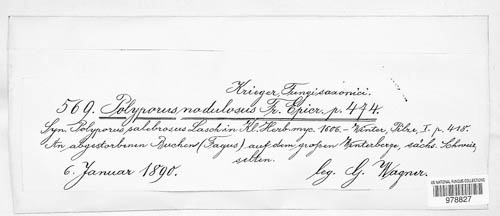 Krieger, Fungi saxonici.
569. Polyporus nodulosus Fr. Epicr. p. 474.
Syn. Polyporus salebrosus Lasch in Kl. Herb. myc. 1606. – Winter, Pilze, I. p. 415.
An abgestorbenen Buchen (Fagus) auf dem großen Winterberge, sächs. Schweiz,
selten.
6. Januar 1890. leg. G. Wagner.
US NATIONAL FUNGUS COLLECTIONS
978827